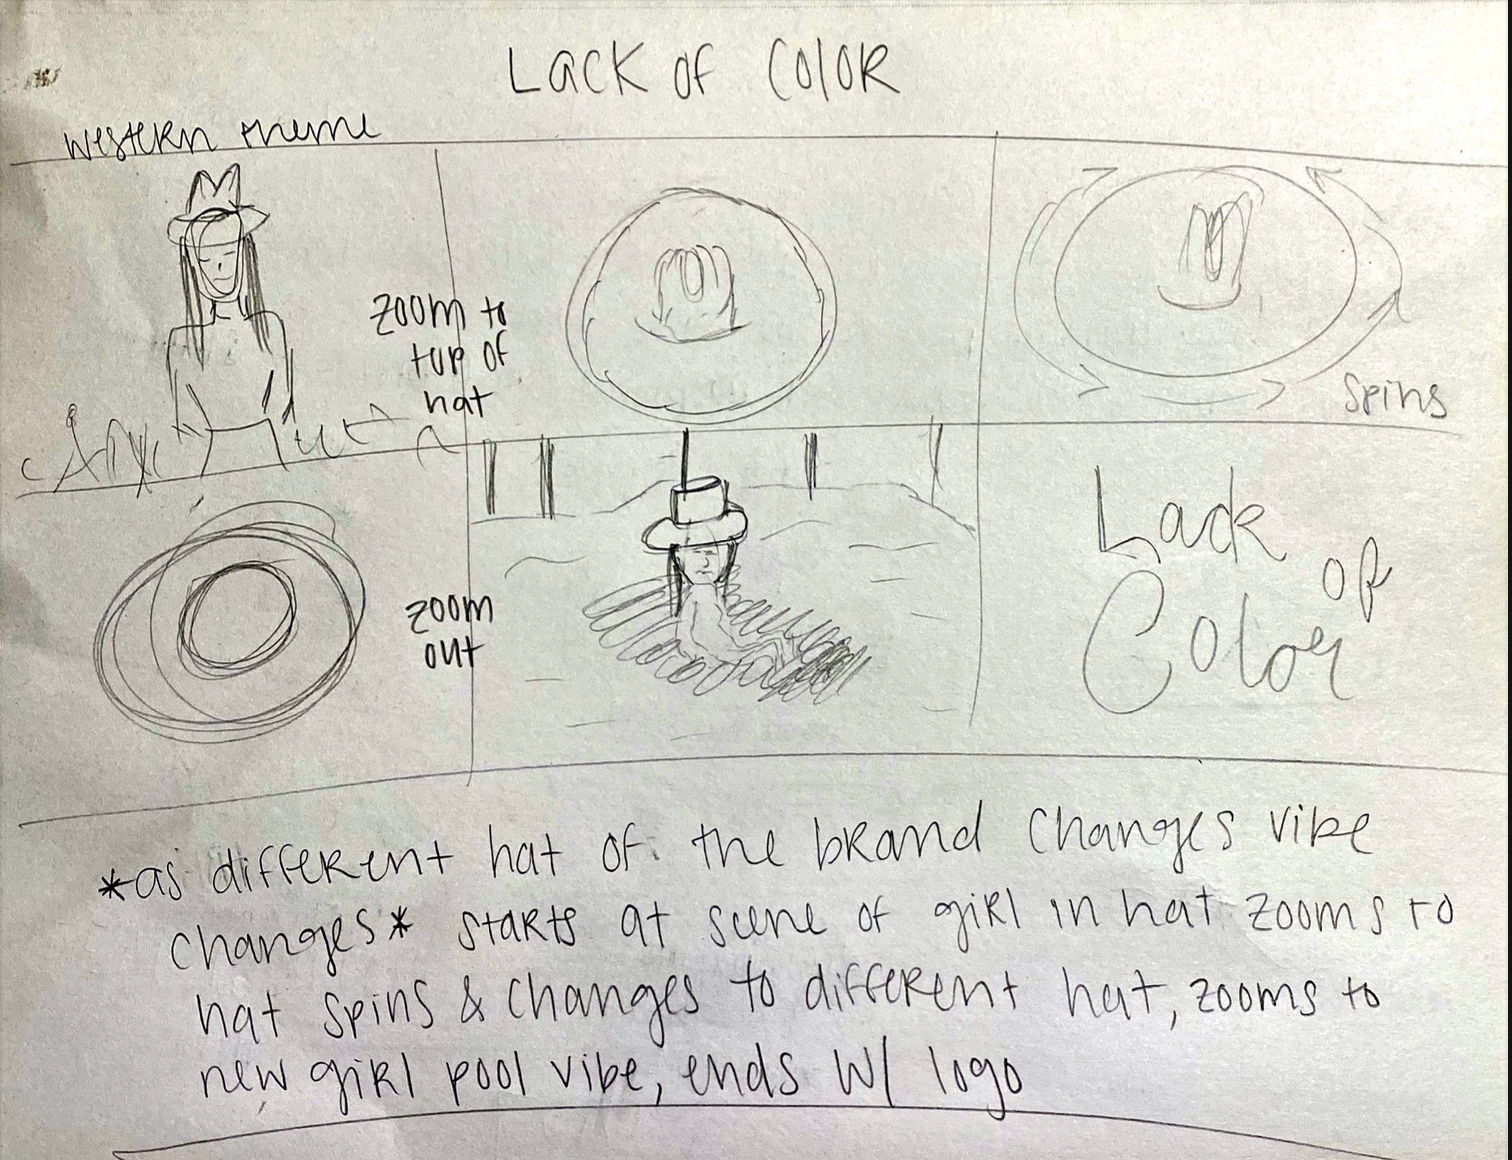 Lack of Color
western theme
zoom to
top of
hat
spins
zoom
out
Lack
of
Color
*as different hat of the brand changes vibe
changes* starts at scene of girl in hat zooms to
hat spins & changes to different hat, zooms to
new girl pool vibe, ends w/ logo